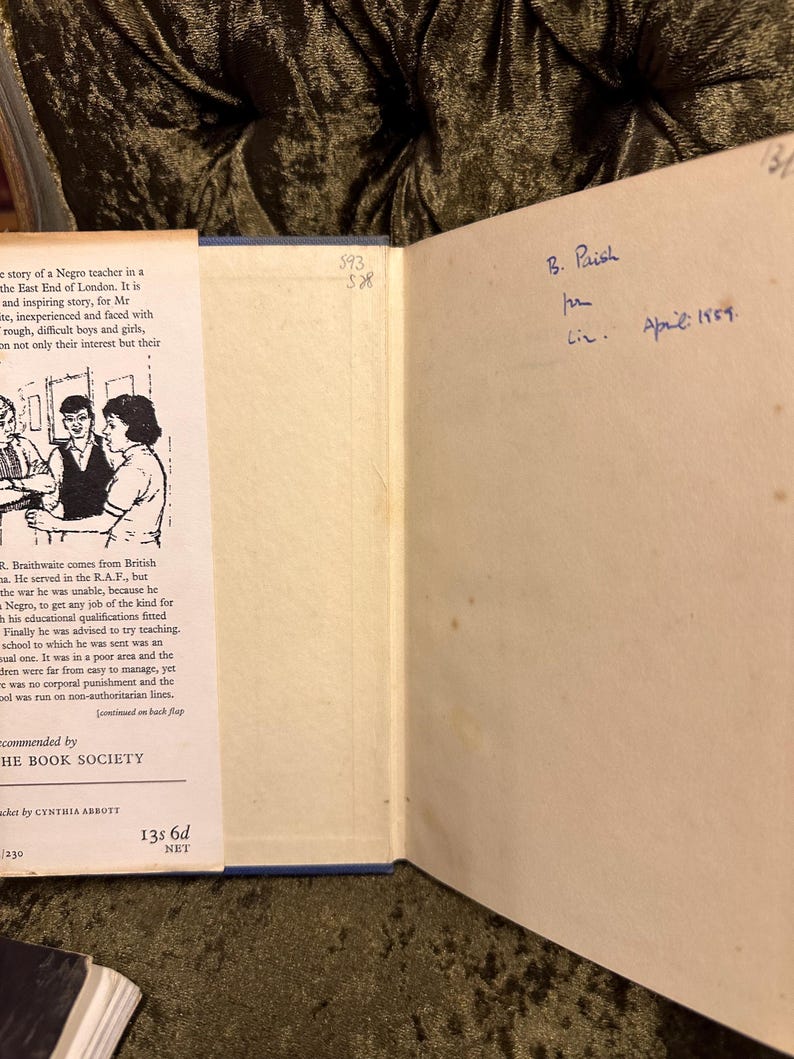 e story of a Negro teacher in a
the East End of London. It is
and inspiring story, for Mr
ite, inexperienced and faced with
rough, difficult boys and girls,
on not only their interest but their
R. Braithwaite comes from British
na. He served in the R.A.F., but
the war he was unable, because he
Negro, to get any job of the kind for
h his educational qualifications fitted
Finally he was advised to try teaching.
school to which he was sent was an
sual one. It was in a poor area and the
dren were far from easy to manage, yet
re was no corporal punishment and the
ool was run on non-authoritarian lines.
[continued on back flap
ecommended by
HE BOOK SOCIETY
acket by CYNTHIA ABBOTT
13s 6d
NET
/230
593
S28
B. Paish
from
Liz. April: 1959.